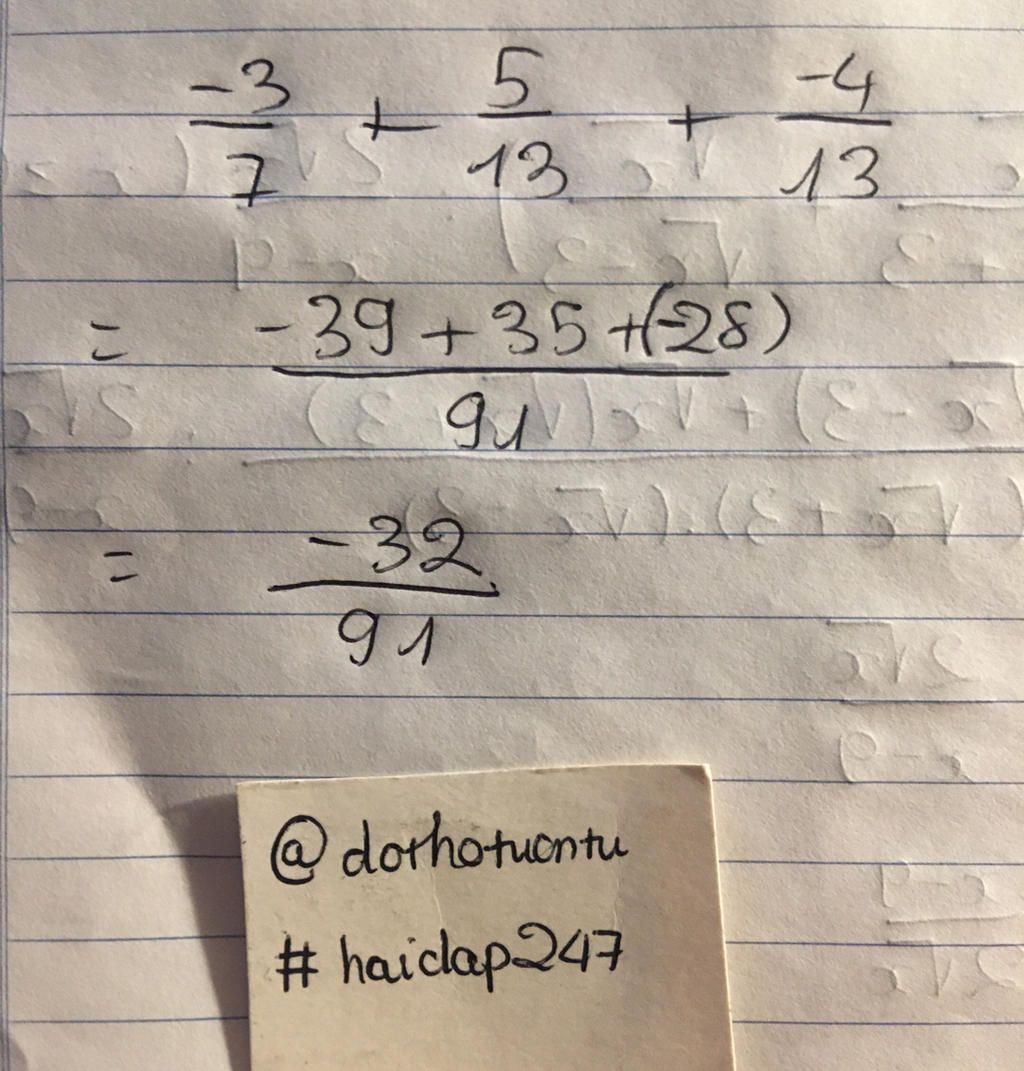 -3/7 + 5/13 + -4/13
= -39 + 35 + (-28) / 91
= -32 / 91
@dothotuontu
#haidap247